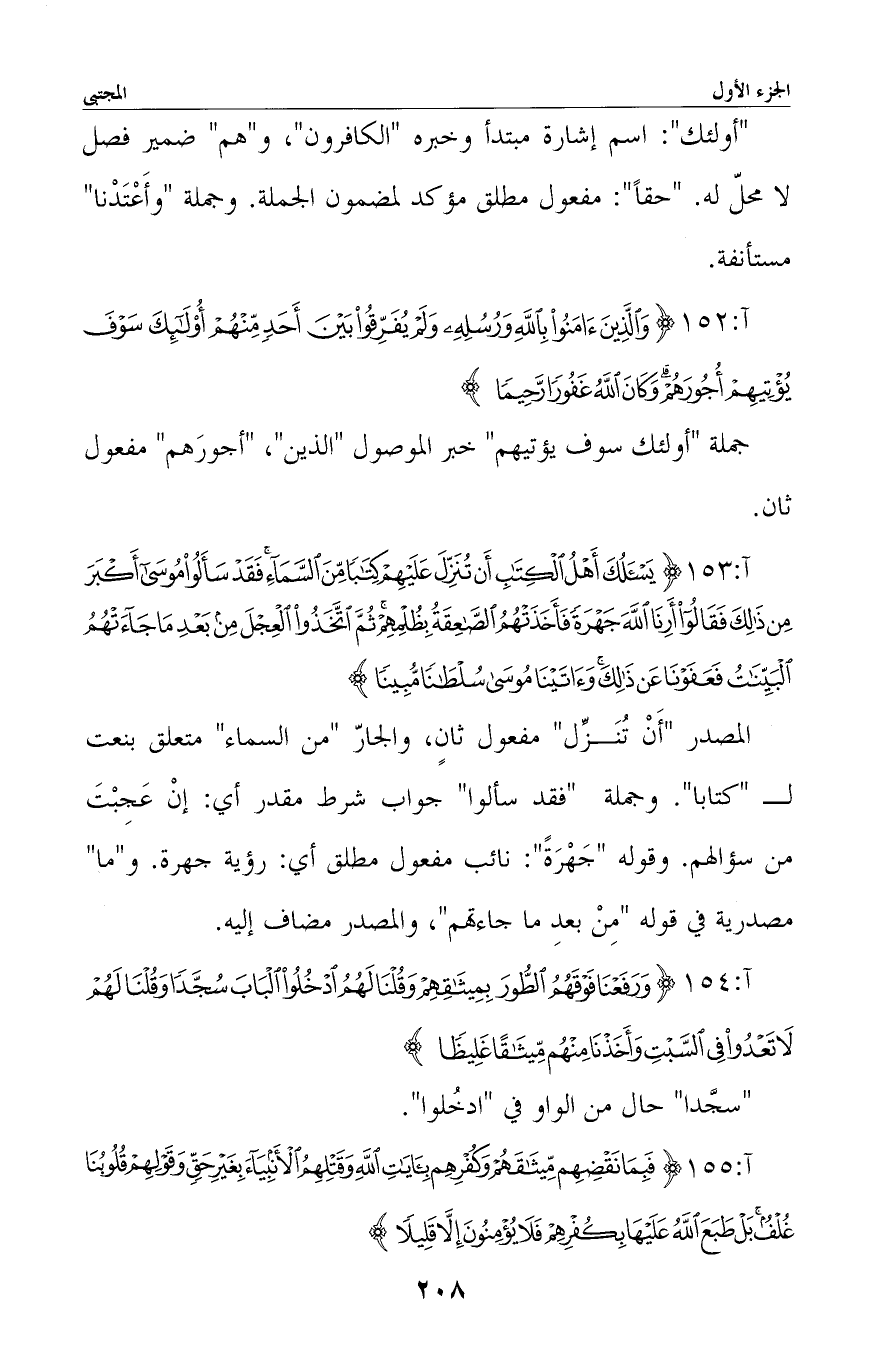 الجزء الأول المجتبى
"أولئك": اسم إشارة مبتدأ وخبره "الكافرون"، و"هم" ضمير فصل
لا محلّ له. "حقاً": مفعول مطلق مؤكد لمضمون الجملة. وجملة "وأَعْتَدْنا"
مستأنفة.
آ:١٥٢ ﴿ وَٱلَّذِينَ ءَامَنُوا۟ بِٱللَّهِ وَرُسُلِهِۦ وَلَمْ يُفَرِّقُوا۟ بَيْنَ أَحَدٍ مِّنْهُمْ أُو۟لَـٰٓئِكَ سَوْفَ
يُؤْتِيهِمْ أُجُورَهُمْ ۗ وَكَانَ ٱللَّهُ غَفُورًا رَّحِيمًا ﴾
جملة "أولئك سوف يؤتيهم" خبر الموصول "الذين"، "أجورَهم" مفعول
ثان.
آ:١٥٣ ﴿ يَسْـَٔلُكَ أَهْلُ ٱلْكِتَـٰبِ أَن تُنَزِّلَ عَلَيْهِمْ كِتَـٰبًا مِّنَ ٱلسَّمَآءِ ۚ فَقَدْ سَأَلُوا۟ مُوسَىٰٓ أَكْبَرَ
مِن ذَٰلِكَ فَقَالُوٓا۟ أَرِنَا ٱللَّهَ جَهْرَةً فَأَخَذَتْهُمُ ٱلصَّـٰعِقَةُ بِظُلْمِهِمْ ۚ ثُمَّ ٱتَّخَذُوا۟ ٱلْعِجْلَ مِنۢ بَعْدِ مَا جَآءَتْهُمُ
ٱلْبَيِّنَـٰتُ فَعَفَوْنَا عَن ذَٰلِكَ ۚ وَءَاتَيْنَا مُوسَىٰ سُلْطَـٰنًا مُّبِينًا ﴾
المصدر "أَنْ تُنَـزِّل" مفعول ثانٍ، والجارّ "من السماء" متعلق بنعت
لـ "كتابا". وجملة "فقد سألوا" جواب شرط مقدر أي: إنْ عَجِبْتَ
من سؤالهم. وقوله "جَهْرَةً": نائب مفعول مطلق أي: رؤية جهرة. و"ما"
مصدرية في قوله "مِنْ بعدِ ما جاءتهم"، والمصدر مضاف إليه.
آ:١٥٤ ﴿ وَرَفَعْنَا فَوْقَهُمُ ٱلطُّورَ بِمِيثَـٰقِهِمْ وَقُلْنَا لَهُمُ ٱدْخُلُوا۟ ٱلْبَابَ سُجَّدًا وَقُلْنَا لَهُمْ
لَا تَعْدُوا۟ فِى ٱلسَّبْتِ وَأَخَذْنَا مِنْهُم مِّيثَـٰقًا غَلِيظًا ﴾
"سجَّدا" حال من الواو في "ادخُلوا".
آ:١٥٥ ﴿ فَبِمَا نَقْضِهِم مِّيثَـٰقَهُمْ وَكُفْرِهِم بِـَٔايَـٰتِ ٱللَّهِ وَقَتْلِهِمُ ٱلْأَنۢبِيَآءَ بِغَيْرِ حَقٍّ وَقَوْلِهِمْ قُلُوبُنَا
غُلْفٌۢ ۚ بَلْ طَبَعَ ٱللَّهُ عَلَيْهَا بِكُفْرِهِمْ فَلَا يُؤْمِنُونَ إِلَّا قَلِيلًا ﴾
٢٠٨